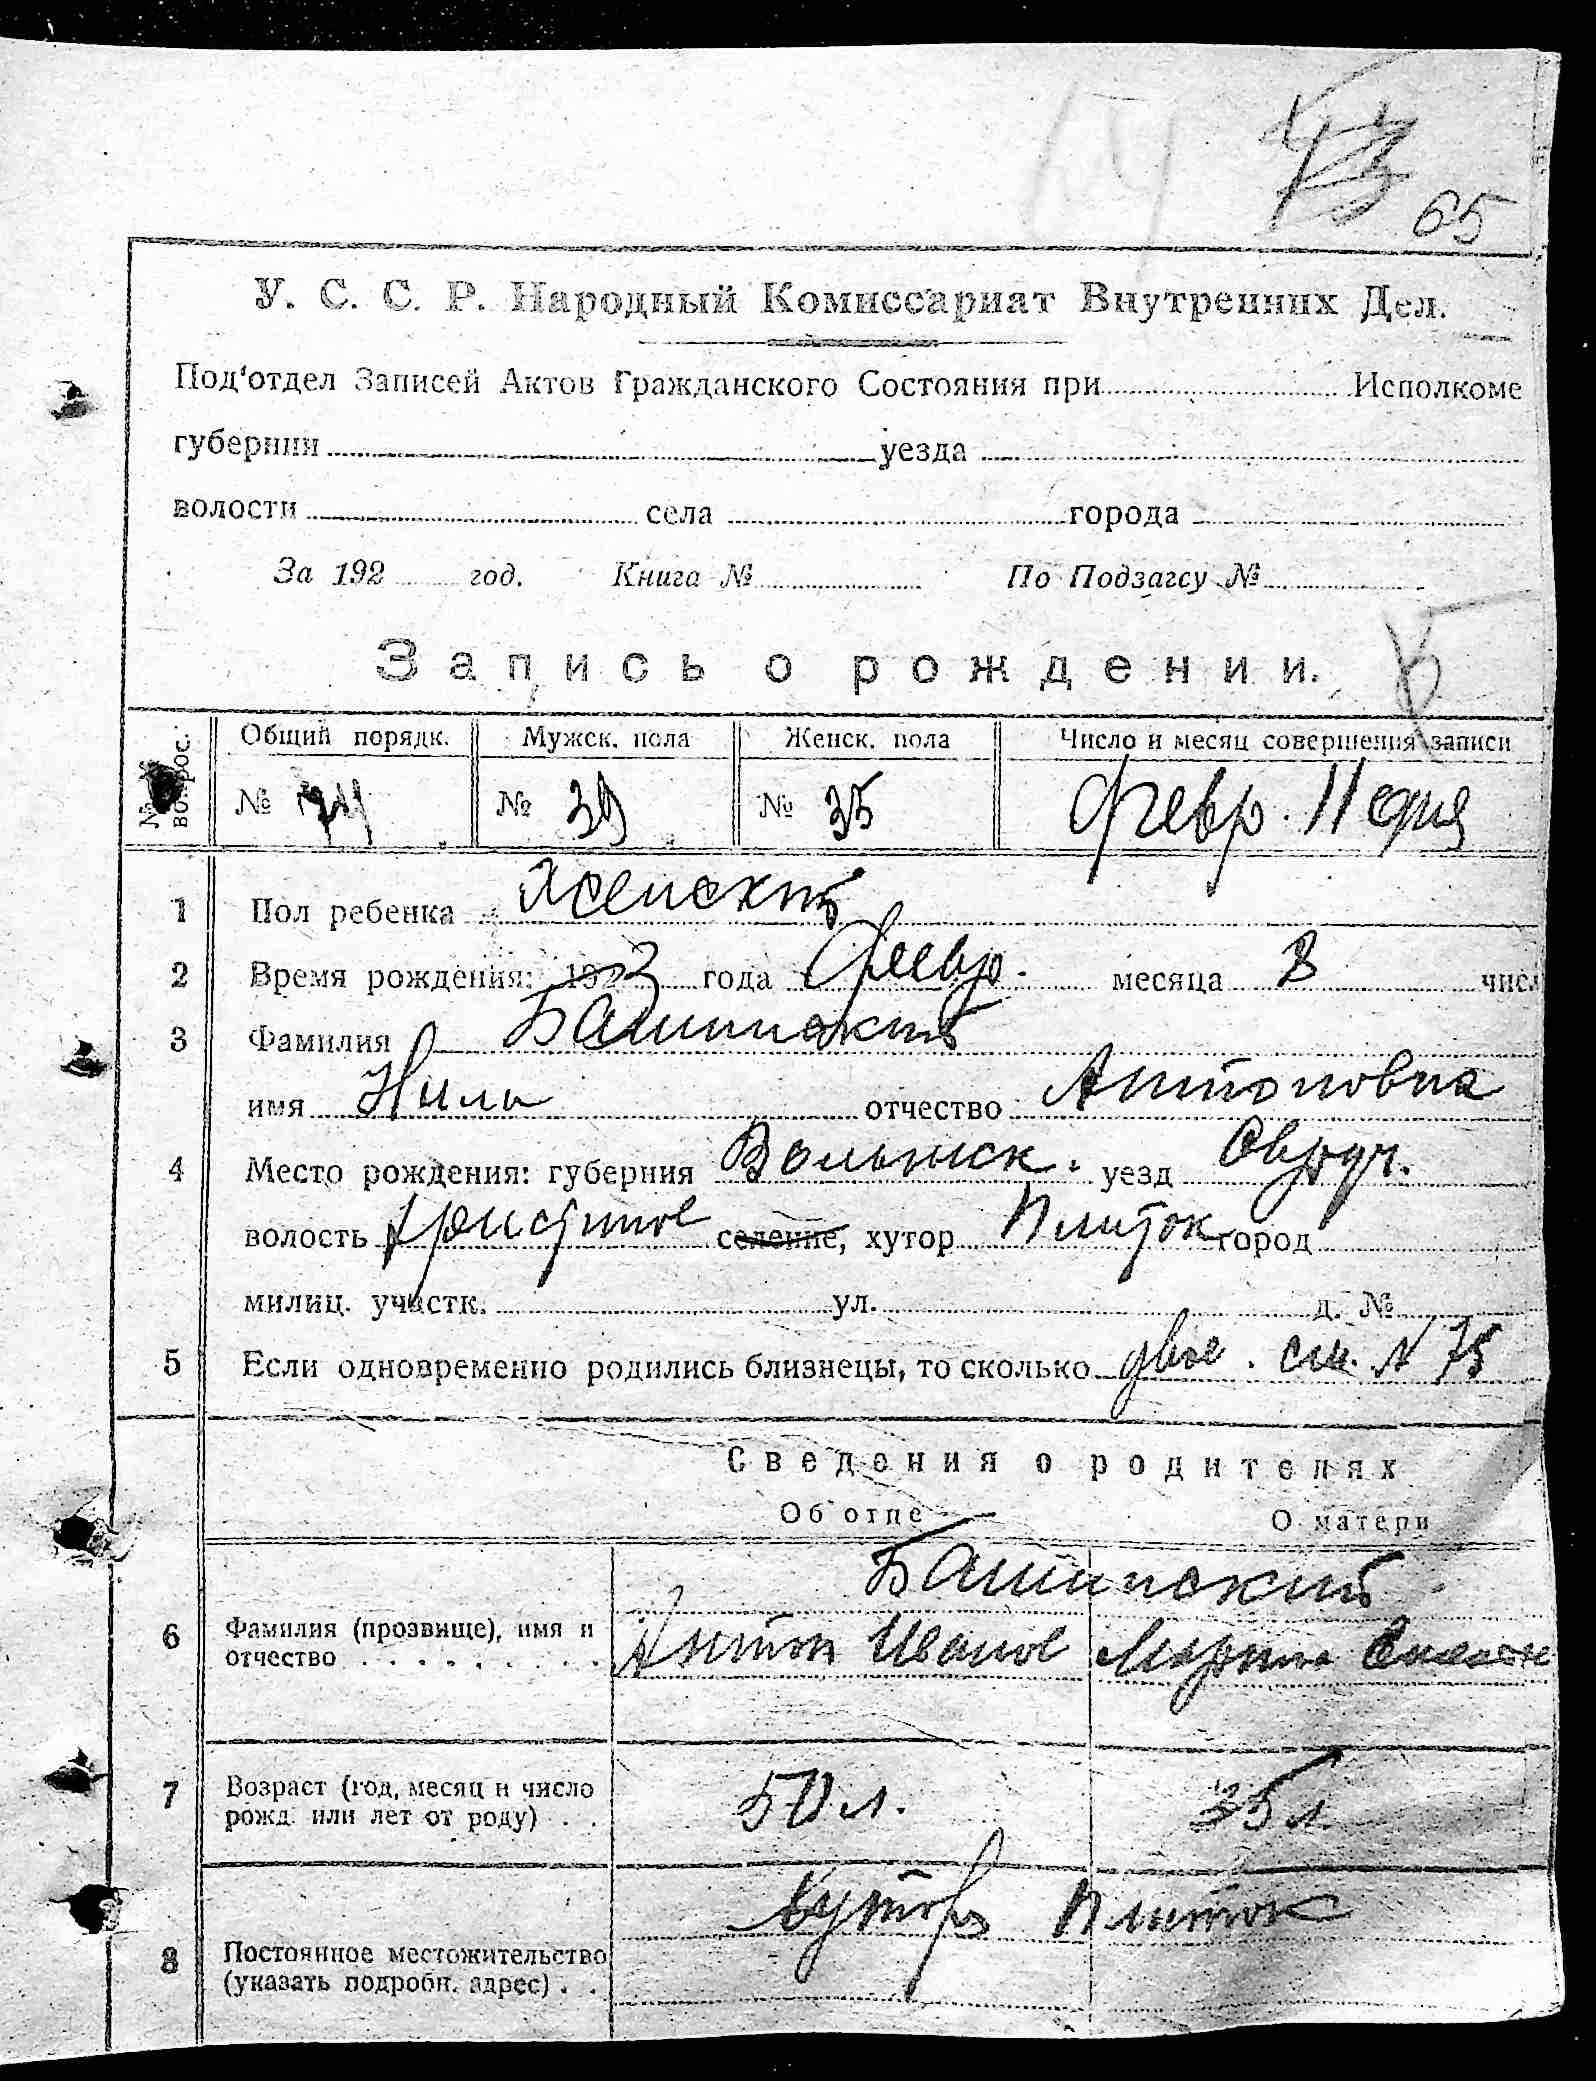 65
У. С. С. Р. Народный Комиссариат Внутренних Дел.
Под'отдел Записей Актов Гражданского Состояния при Исполкоме
губернии уезда
волости села города
За 192 год. Книга № По Подзагсу №
Запись о рождении.
№ вопрос. Общий порядк. Мужск. пола Женск. пола Число и месяц совершения записи
№ 74 № 39 № 35 Февр. 11 дня
1 Пол ребенка Женский
2 Время рождения: 1923 года Февр. месяца 8 числ
3 Фамилия
имя Нила отчество Антоновна
4 Место рождения: губерния Волынск. уезд Овруч.
волость селение, хутор Плиток город
милиц. участк. ул. д. №
5 Если одновременно родились близнецы, то сколько двое. см. N 75
Сведения о родителях
Об отце О матери
6 Фамилия (прозвище), имя и
отчество Антон Иванов
7 Возраст (год, месяц и число
рожд. или лет от роду) 50 л. 35 л.
Хутор Плиток
8 Постоянное местожительство
(указать подробн. адрес)